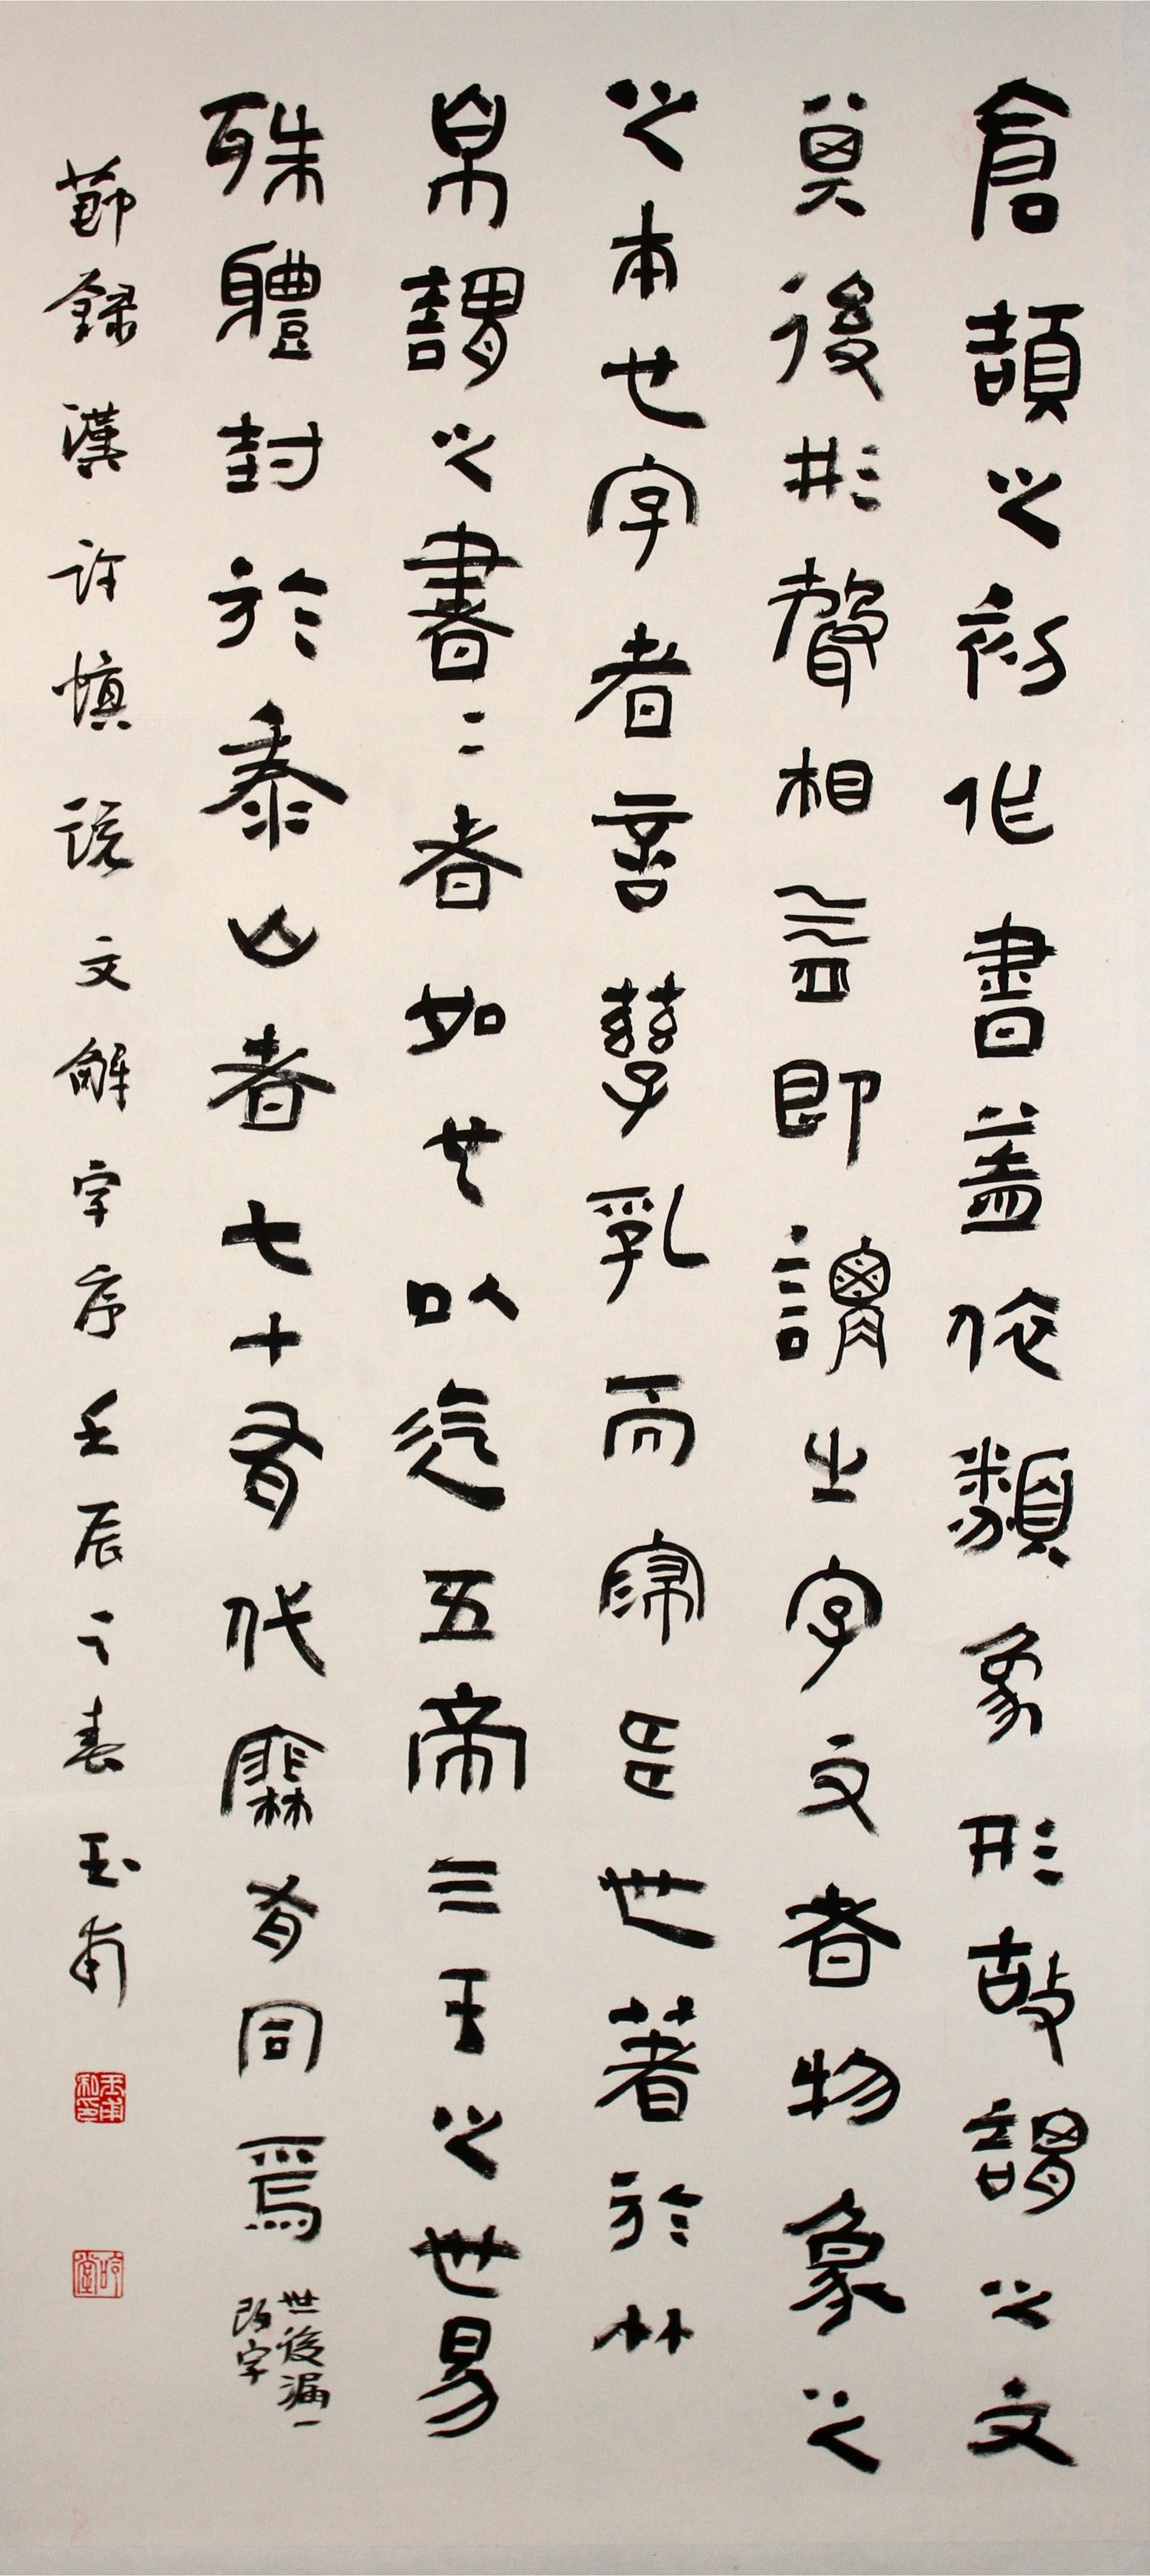 倉頡之初作書蓋依類象形故謂之文
其後形聲相益即謂之字文者物象之
之本也字者言孳乳而寖多也著於竹
帛謂之書〻者如也以迄五帝三王之世易
殊體封於泰山者七十有代靡有同焉
世後漏一
改字
節錄漢許慎說文解字序壬辰之春玉甫
玉甫私印